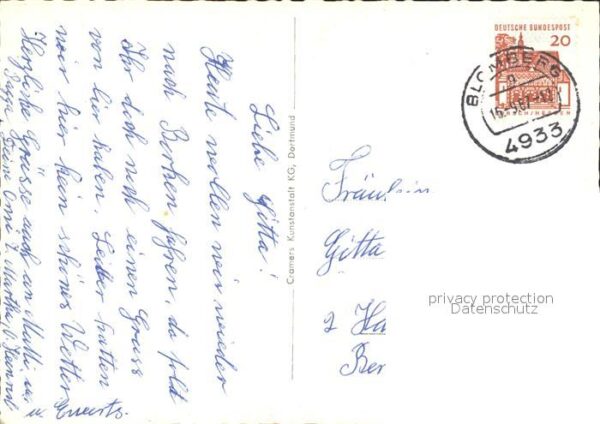 Liebe Gitta!
Heute wollen wir wieder
nach Borken fahren, da sollt
Ihr doch noch einen Gruss
von hier haben. Leider hatten
wir hier kein schönes Wetter.
Herzliche Grüsse auch an Mutti,
u. Deine Omi Martha,
u. Everts.
Cramers Kunstanstalt KG, Dortmund
DEUTSCHE BUNDESPOST
20
LORSCH/HESSEN
BLOMBERG
4933
Fräulein
Gitta
2 Ha
Ber
privacy protection
Datenschutz